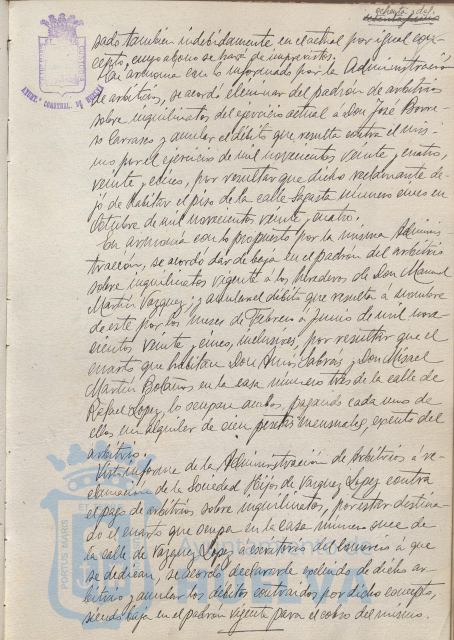 ochenta y dos.
AYUNT. CONSTNAL. DE HUELVA
sado también indebidamente en el actual por igual con-
cepto, cuyo abono se hará de imprevistos.
En armonía con lo informado por la Administración
de arbitrios, se acordó eliminar del padrón de arbitrios
sobre inquilinatos del ejercicio actual á Don José Borre-
ro Carrasco y anular el débito que resulta contra el mis-
mo por el ejercicio de mil novecientos veinte y cuatro,
veinte y cinco, por resultar que dicho reclamante de-
jó de habitar el piso de la calle Sagasta número cinco en
Octubre de mil novecientos veinte y cuatro.
En armonía con lo propuesto por la misma Adminis-
tración, se acordó dar de baja en el padrón del arbitrio
sobre inquilinatos vigente á los herederos de Don Manuel
Martín Vázquez; y anular el débito que resulta á nombre
de este por los meses de Febrero á Junio de mil nove
cientos veinte y cinco, inclusives, por resultar que el
cuarto que habitan Don y Don Misael
Martín Bolaños en la casa número tres de la calle de
Rafael Lopez, lo ocupan ambos, pagando cada uno de
ellos un alquiler de cien pesetas mensuales, exento del
arbitrio.
Visto informe de la Administración de Arbitrios á re-
clamación de la Sociedad Hijos de Vazquez Lopez contra
el pago de arbitrios sobre inquilinatos, por estar destina-
do el cuarto que ocupa en la casa número once de
la calle de Vazquez Lopez á escritorio del comercio á que
se dedican, se acordó declararle exento de dicho ar-
bitrio y anular los débitos contraidos por dicho concepto,
siendo baja en el padrón vigente para el cobro del mismo.
PORTUS MARIS
Ayuntamiento de
HUELVA